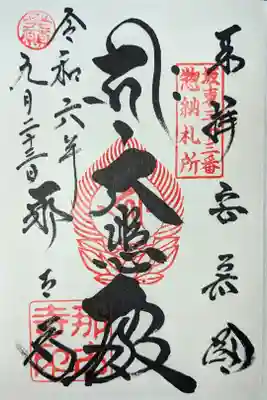 奉拝 安房國
坂東三十三番
惣納札所
大悲殿
令和六年
九月二十三日 那古寺
那古
寺印